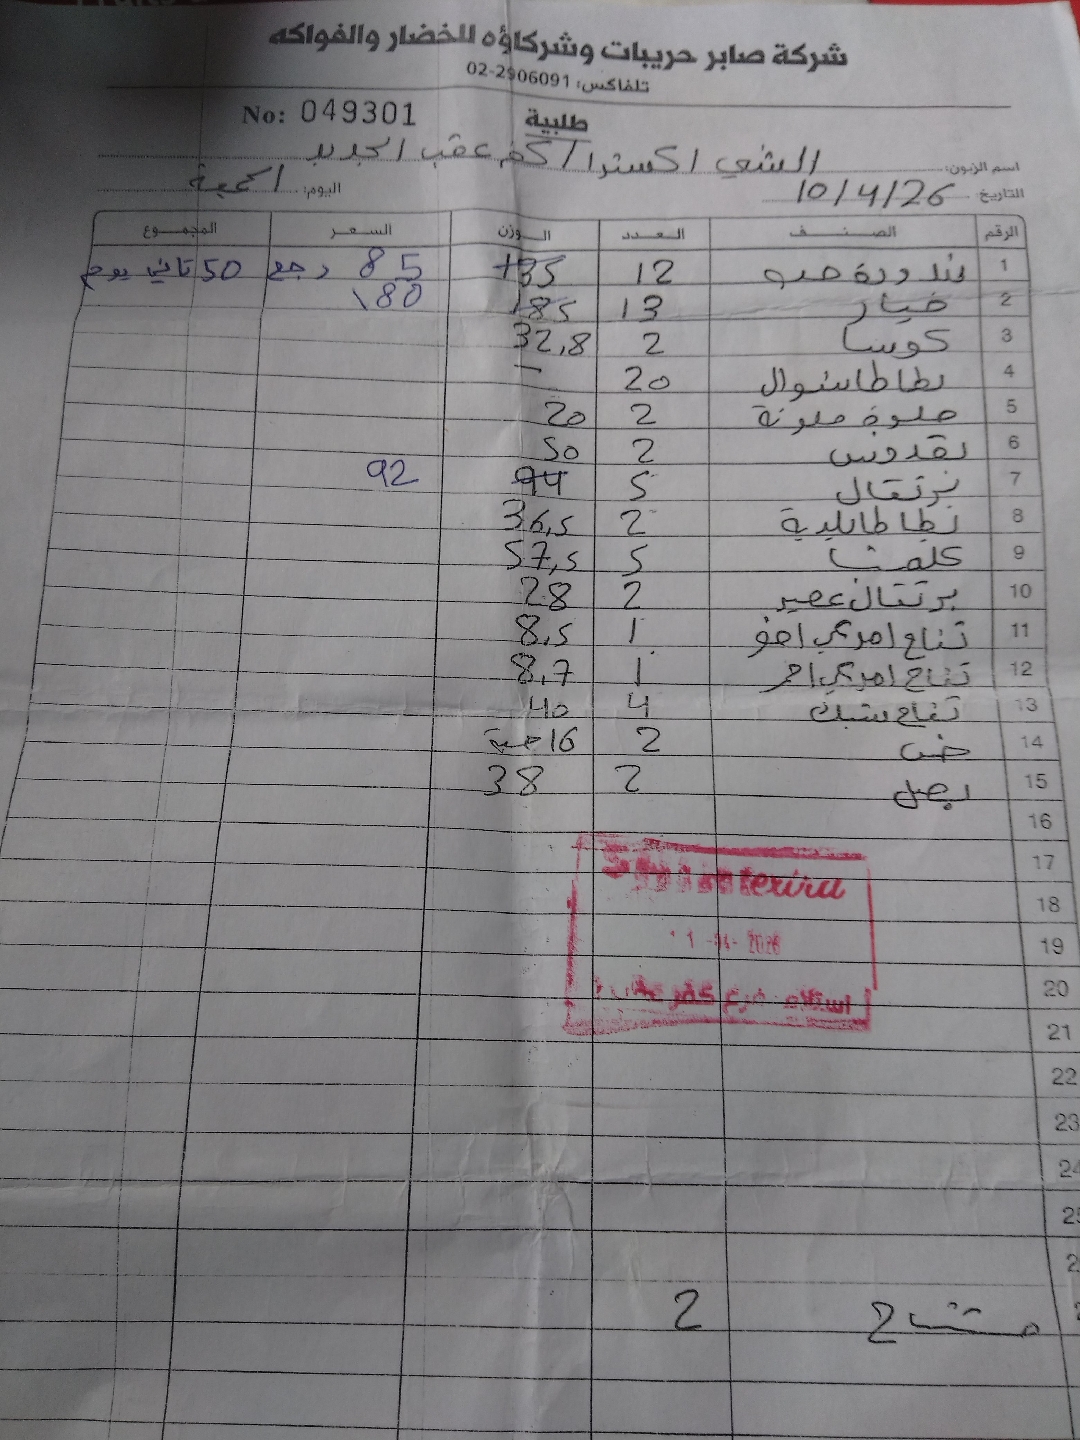 شركة صابر حريبات وشركاؤه للخضار والفواكه
تلفاكس: 02-2906091
No: 049301
طلبية
اسم الزبون: الشني اكسترا / كفر عقب الجديد
التاريخ 10/4/26 اليوم: الجمعة
الرقم الصنف العدد الوزن السعر المجموع
1 بندورة 12 135 85 رجع 50 تاني يوم
2 خيار 13 185 180
3 كوسا 2 32,8
4 بطاطا شوال 20 -
5 حلوة ملونة 2 20
6 بقدونس 2 50
7 برتقال 5 94 92
8 بطاطا بلدية 2 36,5
9 كلمنتينا 5 57,5
10 برتقال عصير 2 28
11 تفاح امريكي اخضر 1 8,5
12 تفاح امريكي احمر 1 8,7
13 تفاح شبك 4 40
14 خس 2 16 حبة
15 بصل 2 38
16
17
18
19
20
21
22
23
24
25
11-04-2026
استلام فرع كفر عقب
2